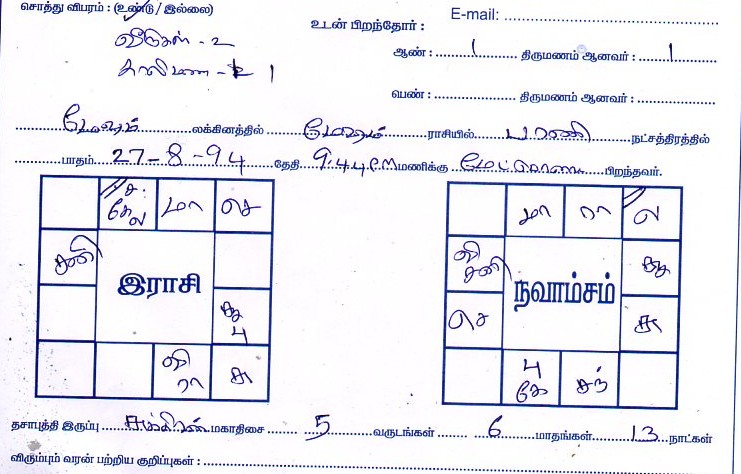 சொத்து விபரம் : (உண்டு / இல்லை)
E-mail:
வீடுகள் - 2
உடன் பிறந்தோர் :
காலிமனை - 1
ஆண் : 1 திருமணம் ஆனவர் : 1
பெண் : திருமணம் ஆனவர் :
மேஷம் லக்கினத்தில் மேஷம் ராசியில் பரணி நட்சத்திரத்தில்
பாதம் 27-8-94 தேதி 9.44 P.M மணிக்கு பிறந்தவர்.
ச. கேது மா செ
சனி
இராசி
சூ பு
வி ரா சு
மா ரா ல
வி சனி
நவாம்சம்
சூ
செ
சு
பு கே சந்
தசாபுத்தி இருப்பு சுக்கிரன் மகாதிசை 5 வருடங்கள் 6 மாதங்கள் 13 நாட்கள்
விரும்பும் வரன் பற்றிய குறிப்புகள் :